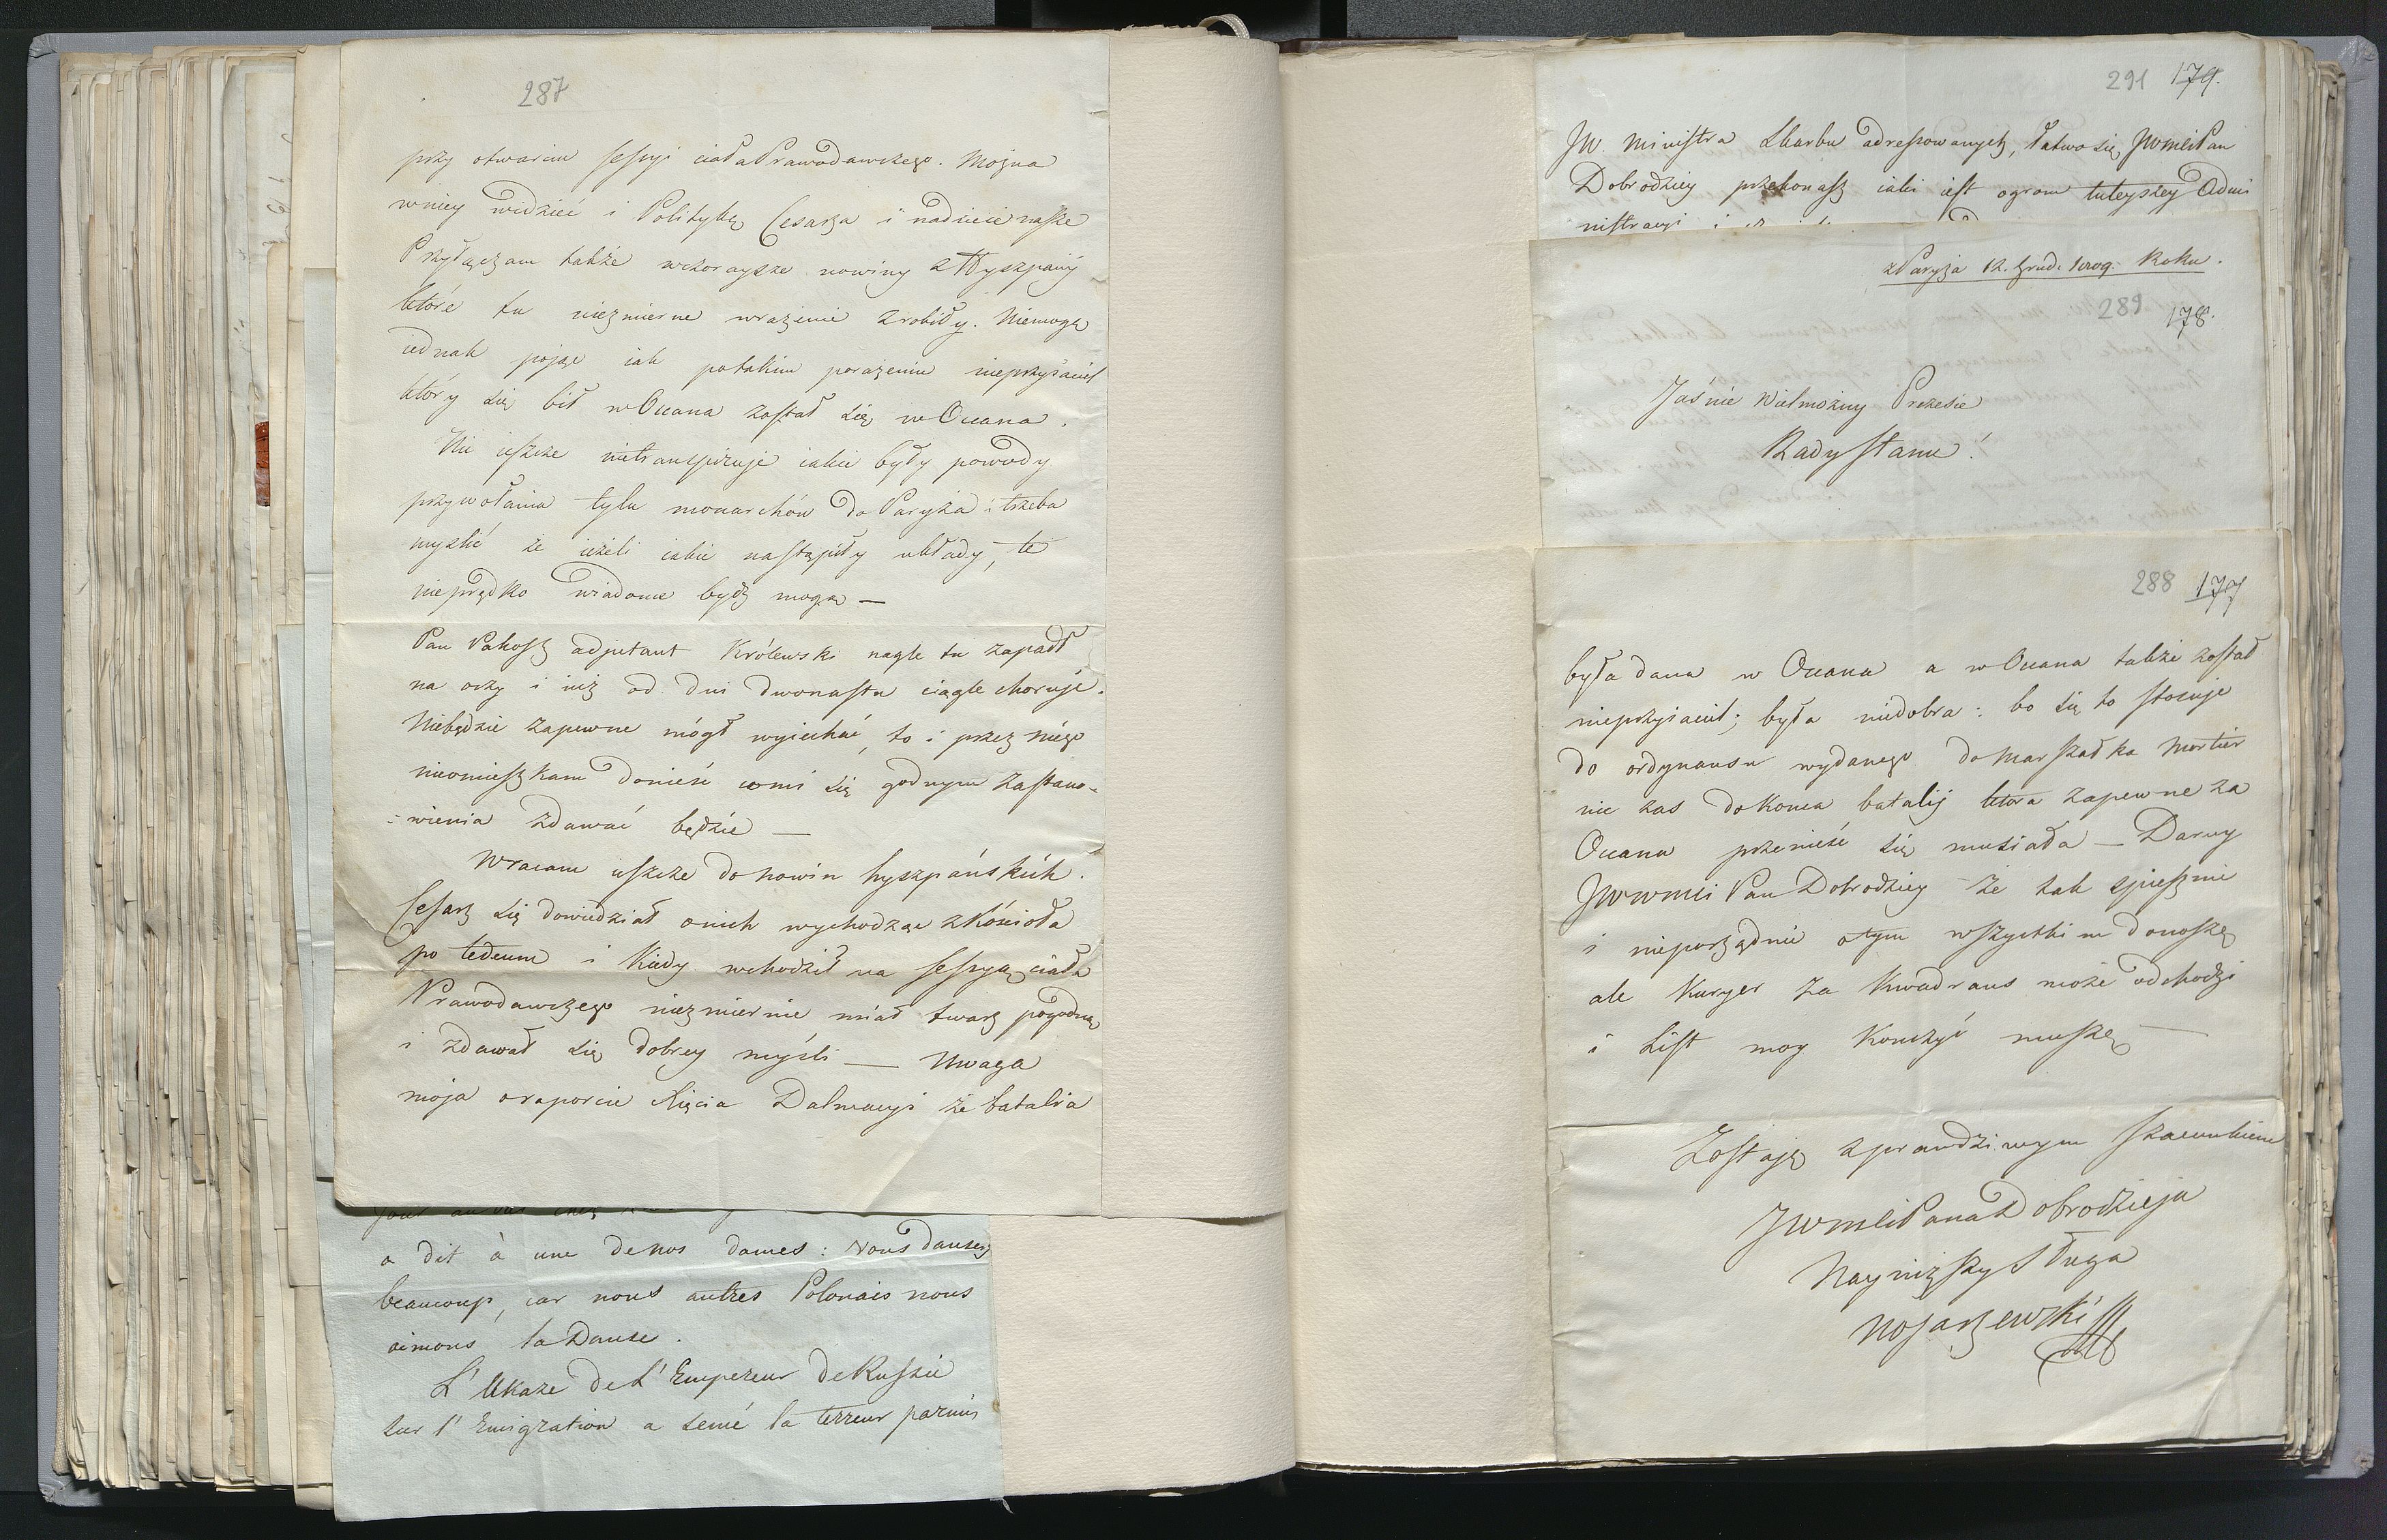 287
przy otwarciu sessyi ciała Prawodawczego. Można
wniey widzieć i Politykę Cesarza i nadzieie nasze
Przyłączam także wczoraysze nowiny z Hyszpanij
które tu niezmierne wrażenie zrobiły. Niemogę
iednak pojąc iak potakim porażeniu nieprzyiaciel
który się bił w Ocana został się w Ocana.
Nic ieszcze nietranspiruje iakie były powody
przywołania tylu monarchów do Paryża: trzeba
myslić że ieżeli iakie nastąpiły układy, te
nieprędko wiadome bydź mogą —
Pan Pakosz adjutant Królewski nagle tu zapadł
na oczy i iuż od dni dwonastu ciągle choruje.
Niebędzie zapewne mógł wyiechać, to i przez niego
nieomieszkam donieść comi się godnym zastano-
-wienia zdawać będzie —
Wracam ieszcze do nowin hyszpańskich.
Cesarz się dowiedział onich wychodząc z Kościoła
po tedeum i kiedy wchodził na sessyą ciała
Prawodawczego niezmiernie miał twarz pogodną
i zdawał się dobrey myśli — Uwaga
moja oraporcie Xięcia Dalmacyi że batalia
a dit à une de nos dames: Vous dansez
beaucoup, car nous autres Polonais nous
aimons la Danse.
L'Ukaze de L'Empereur de Russie
sur l'Emigration a semé la terreur parmis
291 179.
JW. Ministra Skarbu adressowanych, łatwo się JWmci Pan
Dobrodziey przekonasz iaki iest ogrom tuteyszey Admi
nistracyi i
z Paryża 12. Grud. 1809. Roku.
289 178.
Jaśnie Wielmożny Prezesie
Rady Stanu!
288 177
była dana w Ocana a w Ocana także został
nieprzyiaciel; była niedobra: bo się to stosuje
do ordynansu wydanego do Marszałka Mortier
nie zas do konca batalij która zapewne za
Ocana przenieść się musiała — Daruy
JWWmci Pan Dobrodziey że tak spiesznie
i nieporządnie otym wszystkim donoszę
ale Kuryer za kwadrans może odchodzi
i List moy konczyć muszę —
Zostaję zprawdziwym szacunkiem
JWmci Pana Dobrodzieja
Nayniższy Sługa
Nosarzewski